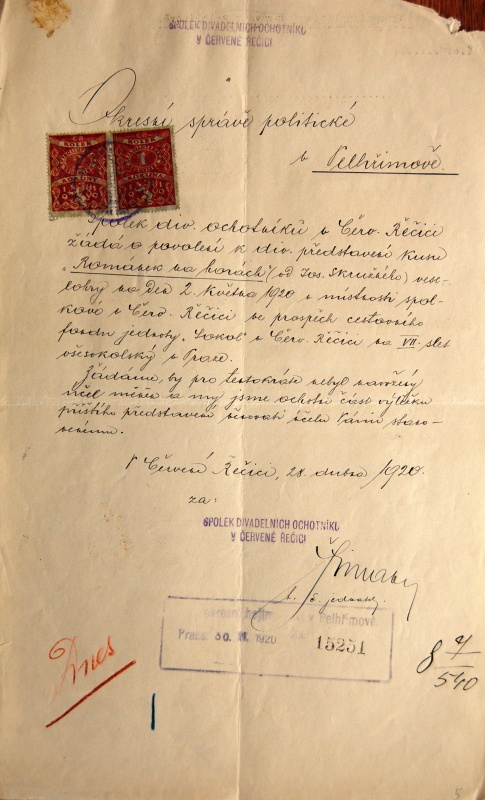 SPOLEK DIVADELNÍCH OCHOTNÍKŮ
V ČERVENÉ ŘEČICI
Okresní správě politické
v Pelhřimově.
KOLEK KOLEK
1 1
Spolek div. ochotníků v Červ. Řečici
žádá o povolení k div. představení kusu
„Románek na horách" (od Jos. Skružného) vese-
lohry na den 2. května 1920 v místnosti spol-
kové v Červ. Řečici ve prospěch cestovního
fondu jednoty „Sokol" v Červ. Řečici na VII. slet
všesokolský v Praze.
Žádáme, by pro tentokráte nebyl navržený
účel měněn a my jsme ochotni část výtěžku
příštího představení věnovati účelu Vámi stano-
venému.
V Červené Řečici, 28. dubna 1920.
za:
SPOLEK DIVADELNÍCH OCHOTNÍKŮ
V ČERVENÉ ŘEČICI
t. č. jednatel.
v Pelhřimově.
30. 1920
15251
Dnes
8 4/540
5